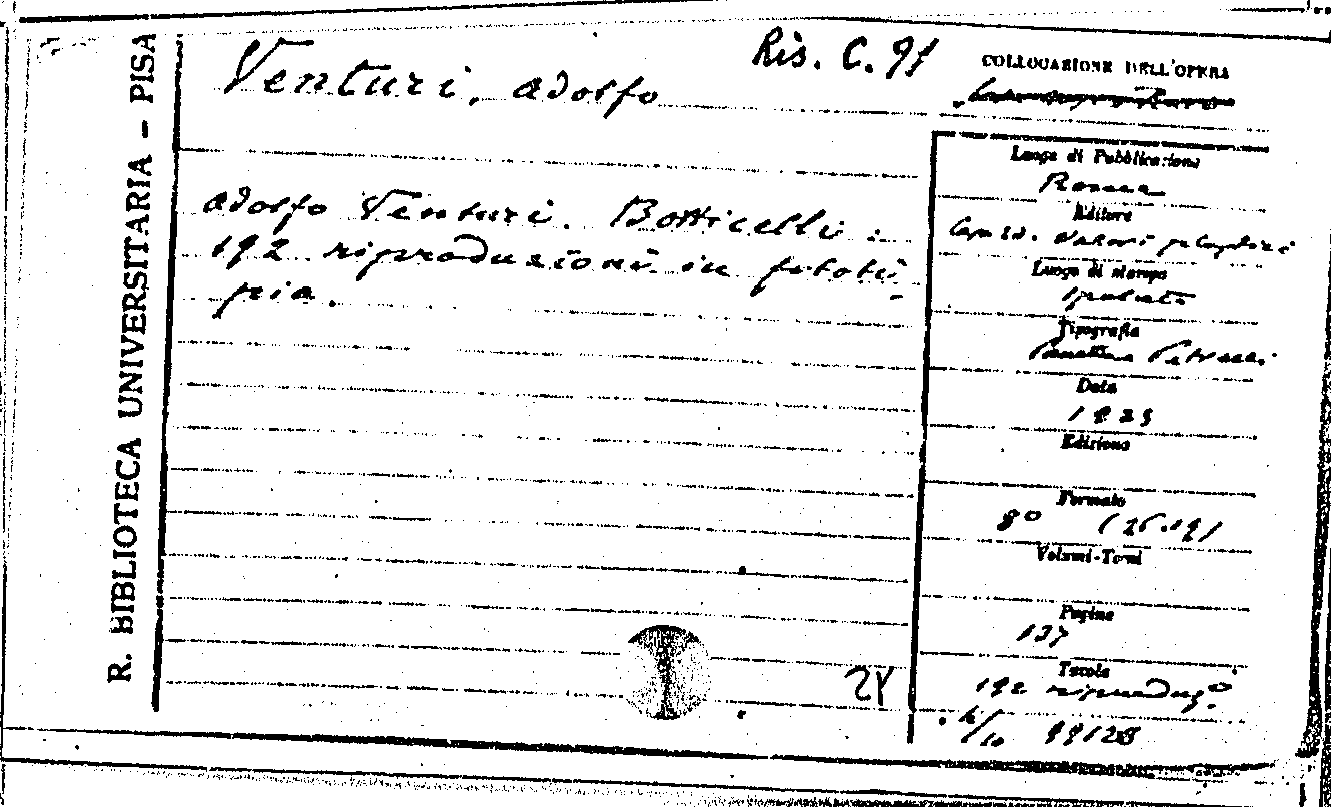 R. BIBLIOTECA UNIVERSITARIA - PISA
Venturi, Adolfo
Ris. C. 91
COLLOCAZIONE DELL'OPERA
Adolfo Venturi. Botticelli:
192 riproduzioni in fototi-
pia.
Luogo di Pubblicazione
Roma
Editore
Valori plastici
Luogo di stampa
Tipografia
Data
1925
Edizione
Formato
8º (26.19)
Volumi-Tomi
Pagine
137
Tavole
192 riproduz.
24
99128